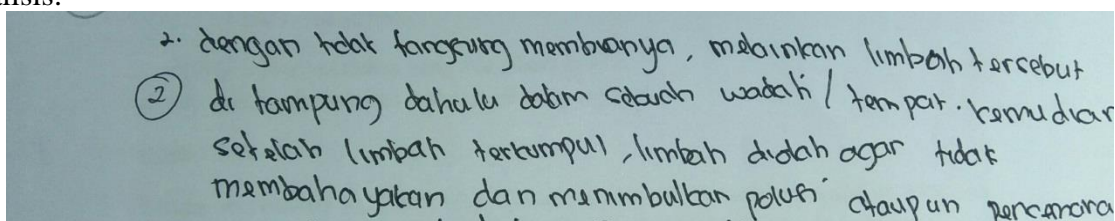 2. dengan tidak langsung membuanya, melainkan limbah tersebut
② di tampung dahulu dalam sebuah wadah / tempat. kemudian
setelah limbah terkumpul, limbah diolah agar tidak
membahayakan dan menimbulkan polusi ataupun pencemara